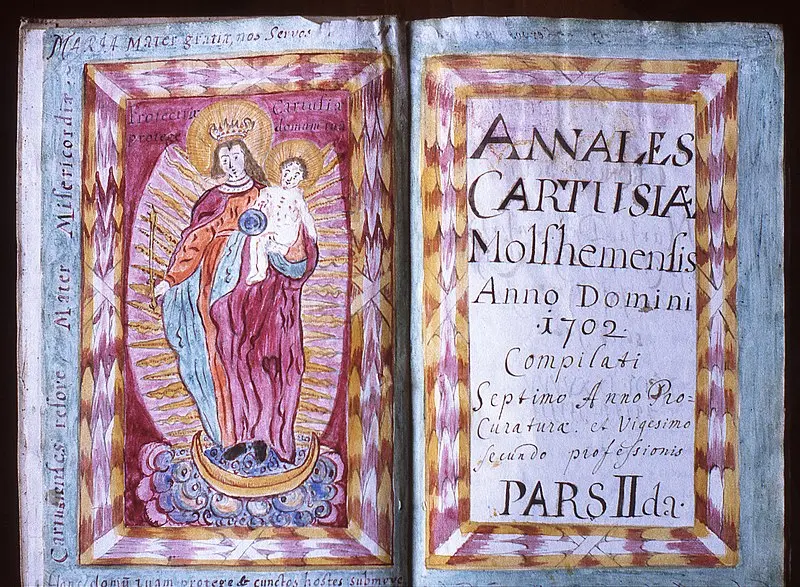 MARIA Mater gratiæ, nos Servos
Cartusienses refove, Mater Misericordiæ
protege
Cartusia
domum tua
Hanc domū tuam protege & cunctos hostes submove
ANNALES
CARTUSIÆ
Molshemensis
Anno Domini
·1702·
Compilati
Septimo Anno Pro=
Curaturæ. et Vigesimo
secundo professionis
PARS II da·